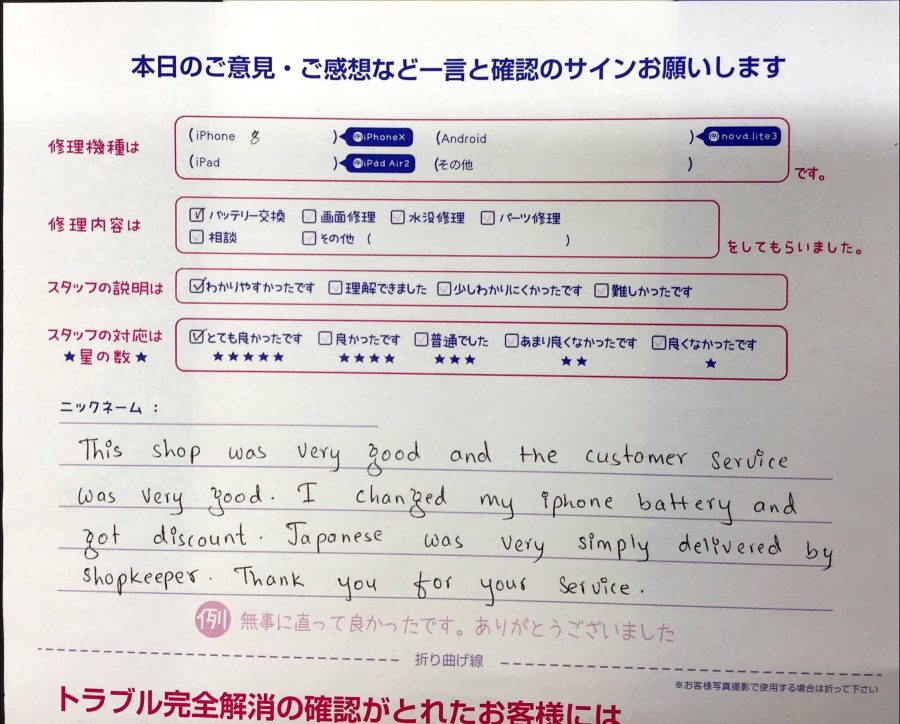 本日のご意見・ご感想など一言と確認のサインお願いします
修理機種は
(iPhone 8 ) 例iPhoneX (Android ) 例nova lite3
(iPad ) 例iPad Air2 (その他 )
です。
修理内容は
バッテリー交換 画面修理 水没修理 パーツ修理
相談 その他 ( )
をしてもらいました。
スタッフの説明は わかりやすかったです 理解できました 少しわかりにくかったです 難しかったです
スタッフの対応は とても良かったです 良かったです 普通でした あまり良くなかったです 良くなかったです
★星の数★ ★★★★★ ★★★★ ★★★ ★★ ★
ニックネーム：
This shop was very good and the customer service
was very good. I changed my iphone battery and
got discount. Japanese was very simply delivered by
shopkeeper. Thank you for your service.
例 無事に直って良かったです。ありがとうございました
折り曲げ線
※お客様写真撮影で使用する場合は折って下さい
トラブル完全解消の確認がとれたお客様には